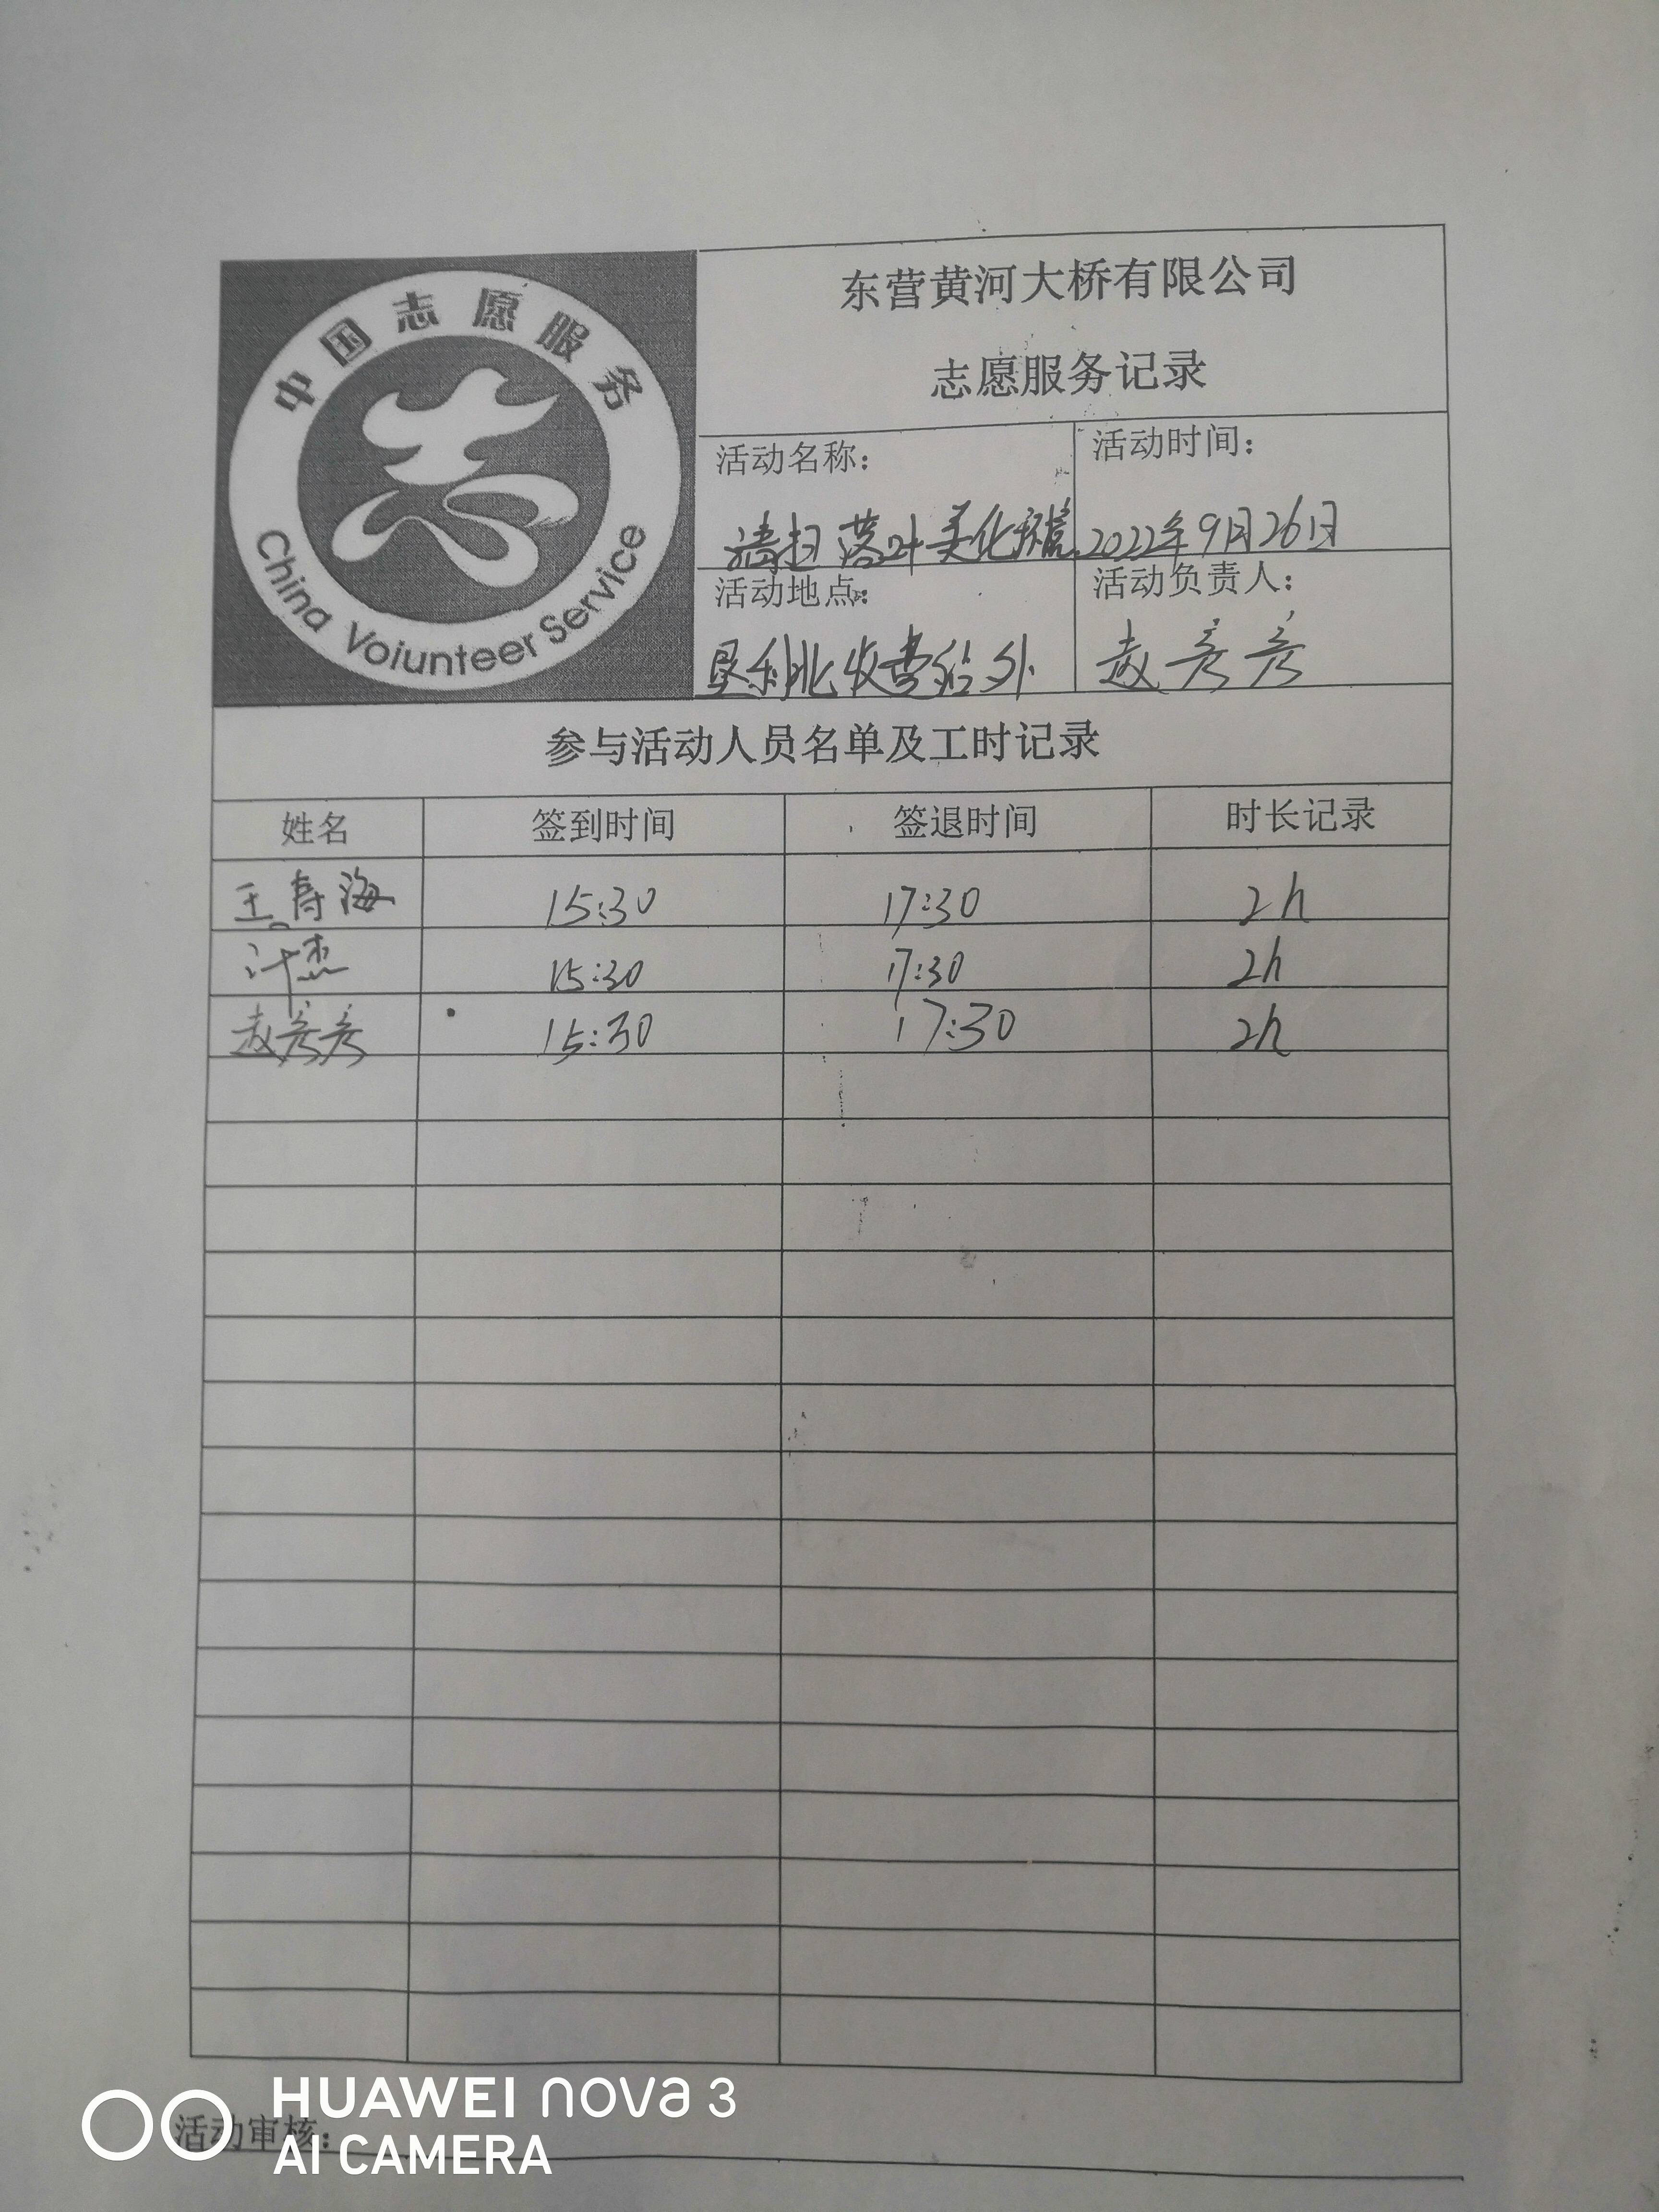 中国志愿服务
China Voiunteer Service
东营黄河大桥有限公司
志愿服务记录
活动名称：
清扫落叶美化环境
活动时间：
2022年9月26日
活动地点：
垦利北收费站外
活动负责人：
赵彦彦
参与活动人员名单及工时记录
姓名 签到时间 签退时间 时长记录
王寿海 15:30 17:30 2h
许杰 15:30 17:30 2h
赵彦彦 15:30 17:30 2h
活动审核：
HUAWEI nova 3
AI CAMERA